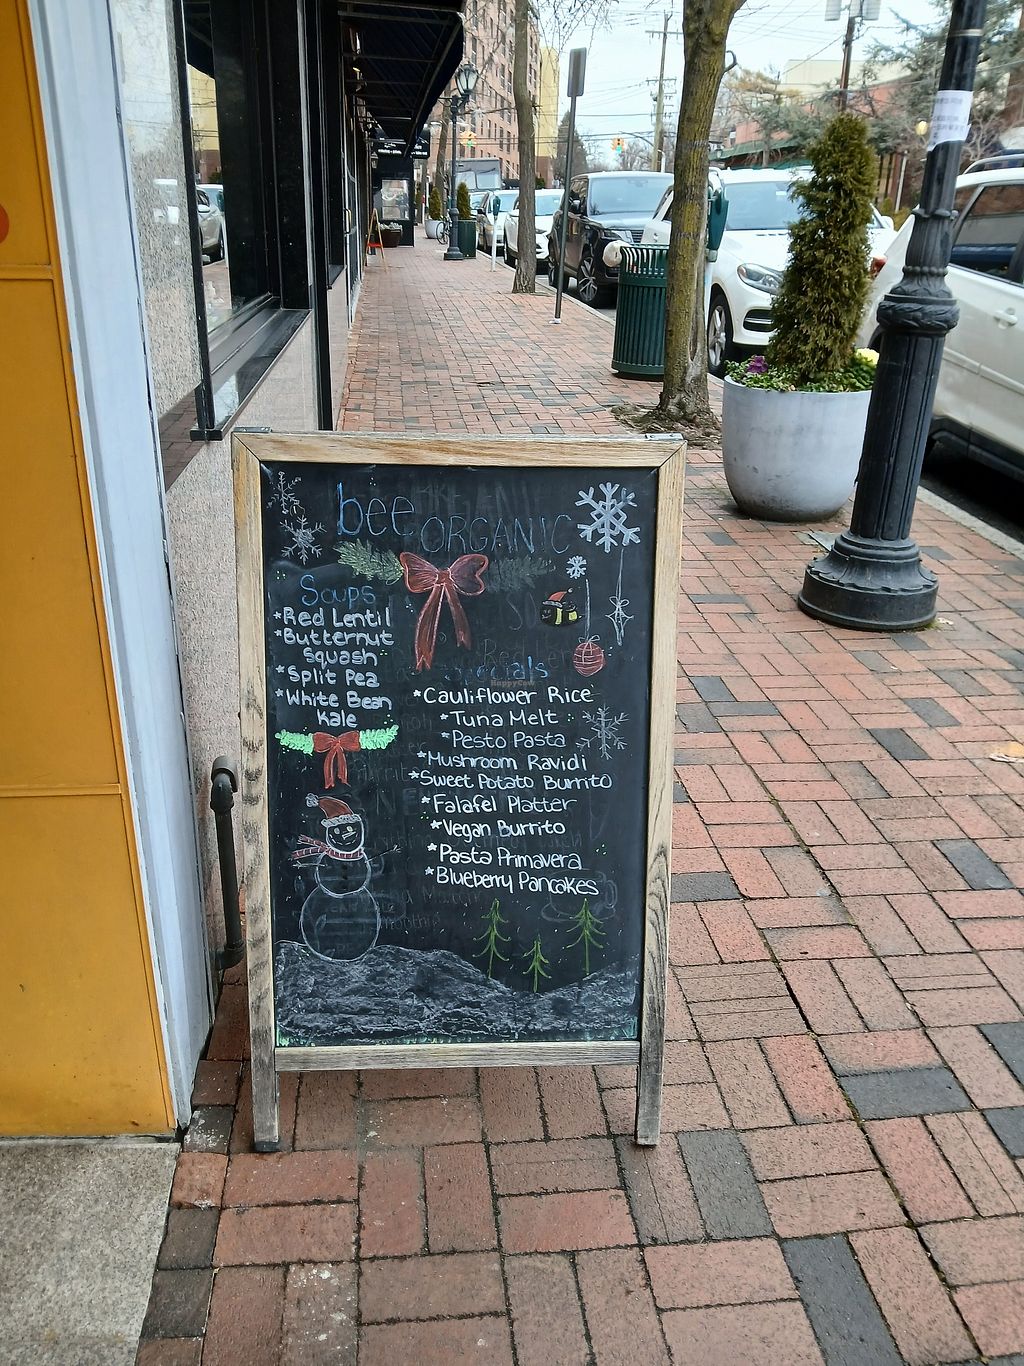 bee ORGANIC
Soups
*Red Lentil
*Butternut
Squash
*Split Pea
*White Bean
Kale
Specials
HappyCow
*Cauliflower Rice
*Tuna Melt
*Pesto Pasta
*Mushroom Ravidi
*Sweet Potato Burrito
*Falafel Platter
*Vegan Burrito
*Pasta Primavera
*Blueberry Pancakes